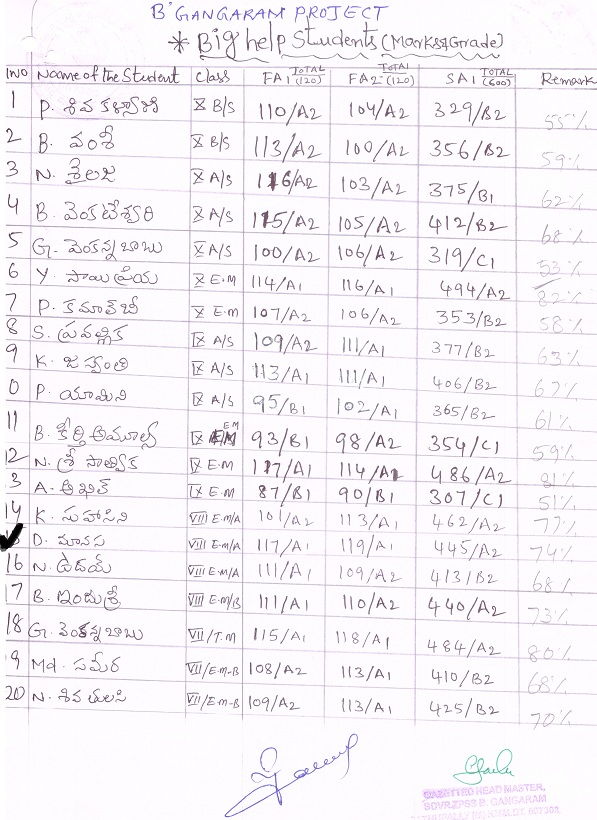 B' GANGARAM PROJECT
* Big help Students (Marks & Grade)
SNO Name of the Student Class FA1 TOTAL (120) FA2 TOTAL (120) SA1 TOTAL (600) Remark
1 P. శివ కళ్యాణి X B/S 110/A2 104/A2 329/B2 55%
2 B. వంశీ X B/S 113/A2 100/A2 356/B2 59%
3 N. శైలజ X A/S 116/A2 103/A2 375/B1 62%
4 B. వెంకటేశ్వరి X A/S 115/A2 105/A2 412/B2 68%
5 G. వెంకన్నబాబు X A/S 100/A2 106/A2 319/C1 53%
6 Y. సాయిప్రియ X E.M 114/A1 116/A1 494/A2 82%
7 P. కమాల్‌బీ X E.M 107/A2 106/A2 353/B2 58%
8 S. ప్రవల్లిక IX A/S 109/A2 111/A1 377/B2 63%
9 K. జస్వంతి IX A/S 113/A1 111/A1 406/B2 67%
0 P. యామిని IX A/S 95/B1 102/A1 365/B2 61%
11 B. కీర్తి అమూల్య IX E.M 93/B1 98/A2 354/C1 59%
12 N. శ్రీ సాత్విక IX E.M 117/A1 114/A1 486/A2 81%
3 A. అఖిల్ IX E.M 87/B1 90/B1 307/C1 51%
14 K. సుహాసిని VIII E.M/A 101/A2 113/A1 462/A2 77%
D. మానస VIII E.M/A 117/A1 119/A1 445/A2 74%
16 N. ఉదయ్ VIII E.M/A 111/A1 109/A2 413/B2 68%
17 B. ఇందుశ్రీ VIII E.M/B 111/A1 110/A2 440/A2 73%
18 G. వెంకన్నబాబు VII/T.M 115/A1 118/A1 484/A2 80%
9 Md. సమీర VII/E.M-B 108/A2 113/A1 410/B2 68%
20 N. శివ తులసి VII/E.M-B 109/A2 113/A1 425/B2 70%
GAZETTED HEAD MASTER,
B. GANGARAM